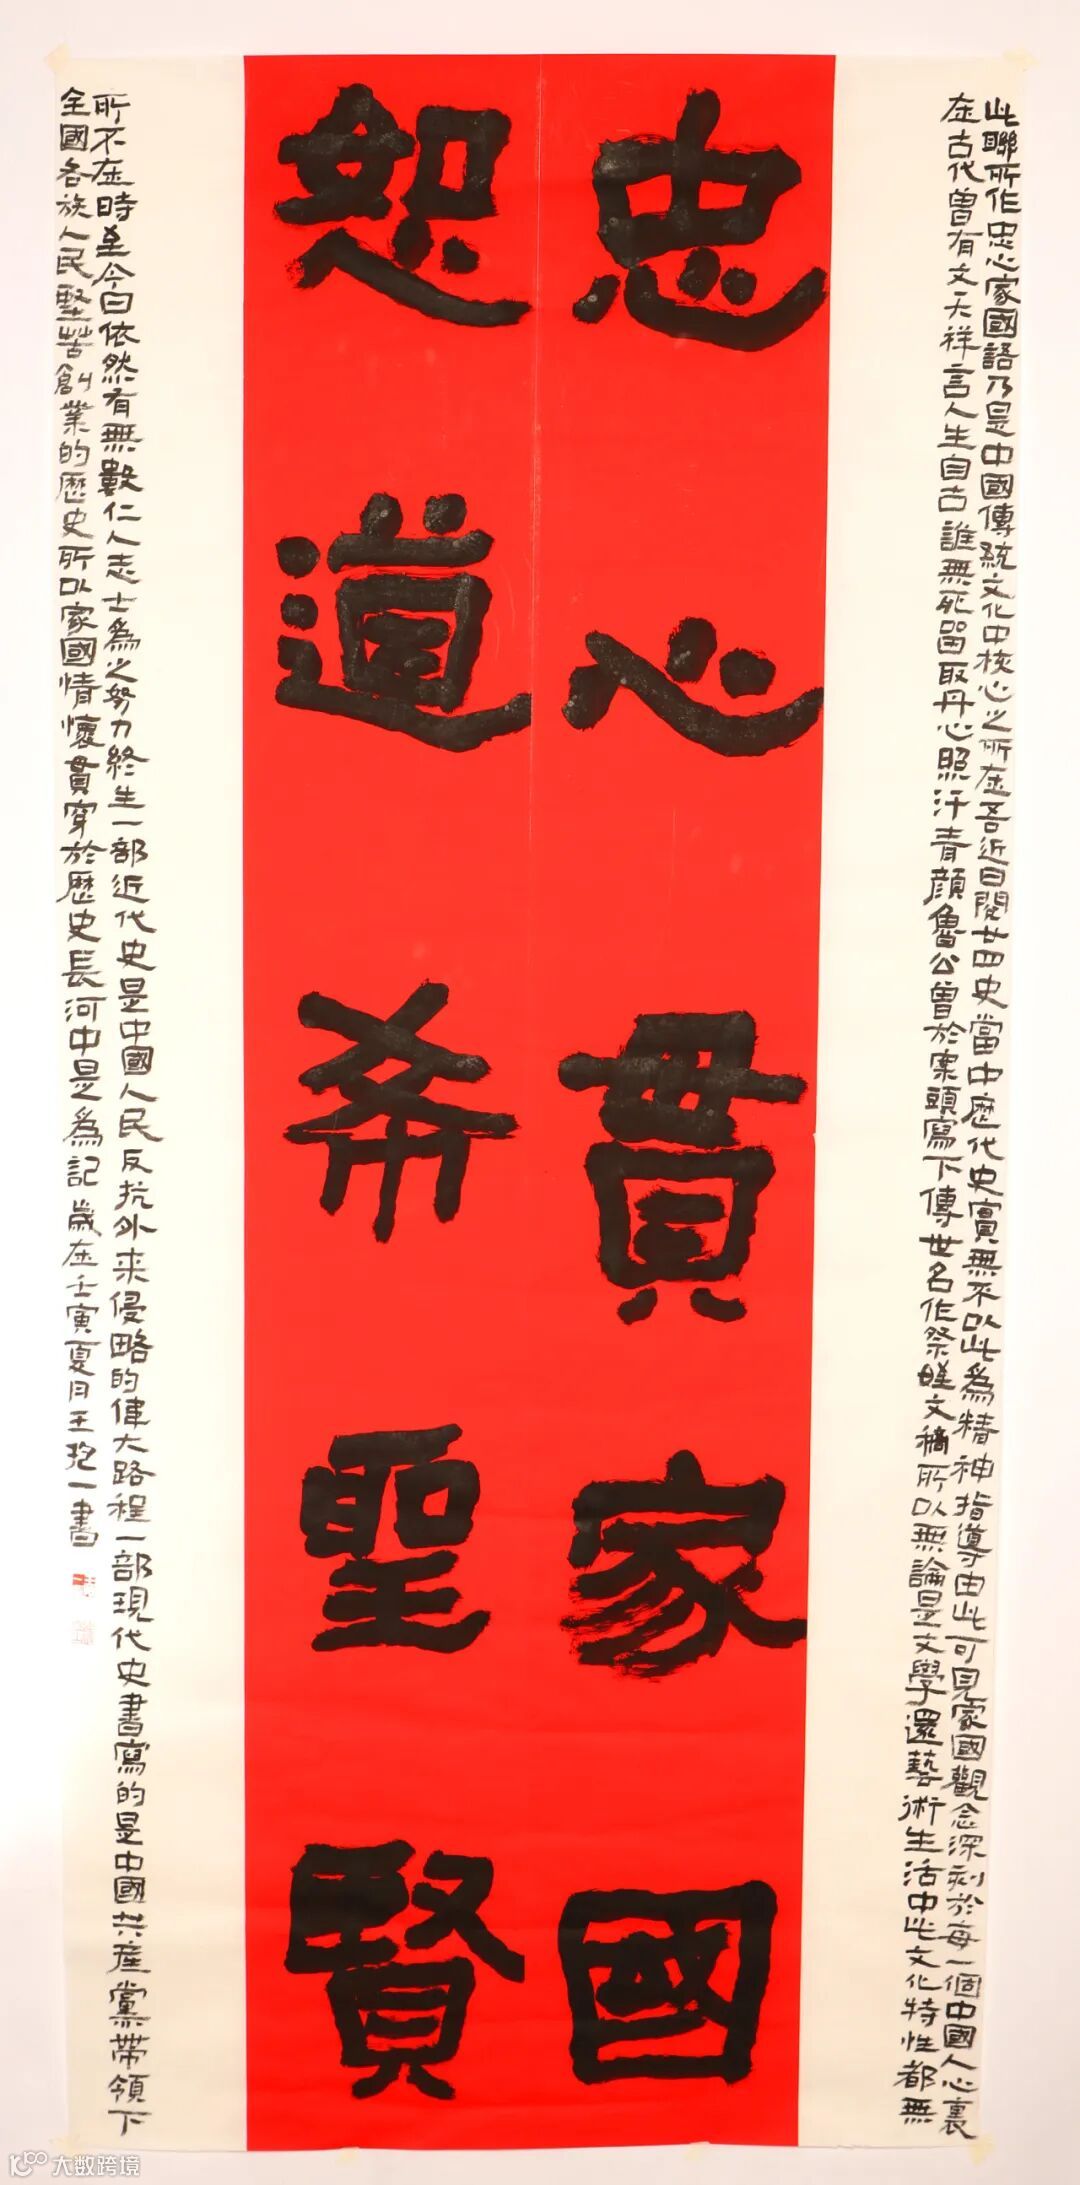 忠心貫家國
恕道希聖賢
此聯所作忠心家國語乃是中國傳統文化中核心之所在吾近日閱廿四史當中歷代史實無不以此為精神指導由此可見家國觀念深刻於每一個中國人心裏
在古代曾有文天祥言人生自古誰無死留取丹心照汗青顏魯公曾於案頭寫下傳世名作祭姪文稿所以無論是文學還藝術生活中此文化特性都無
所不在時至今日依然有無數仁人志士為之努力終生一部近代史是中國人民反抗外来侵略的偉大路程一部現代史書寫的是中國共產黨帶領下
全國各族人民堅苦創業的歷史所以家國情懷貫穿於歷史長河中是為記 歲在壬寅夏月王一書
大数跨境